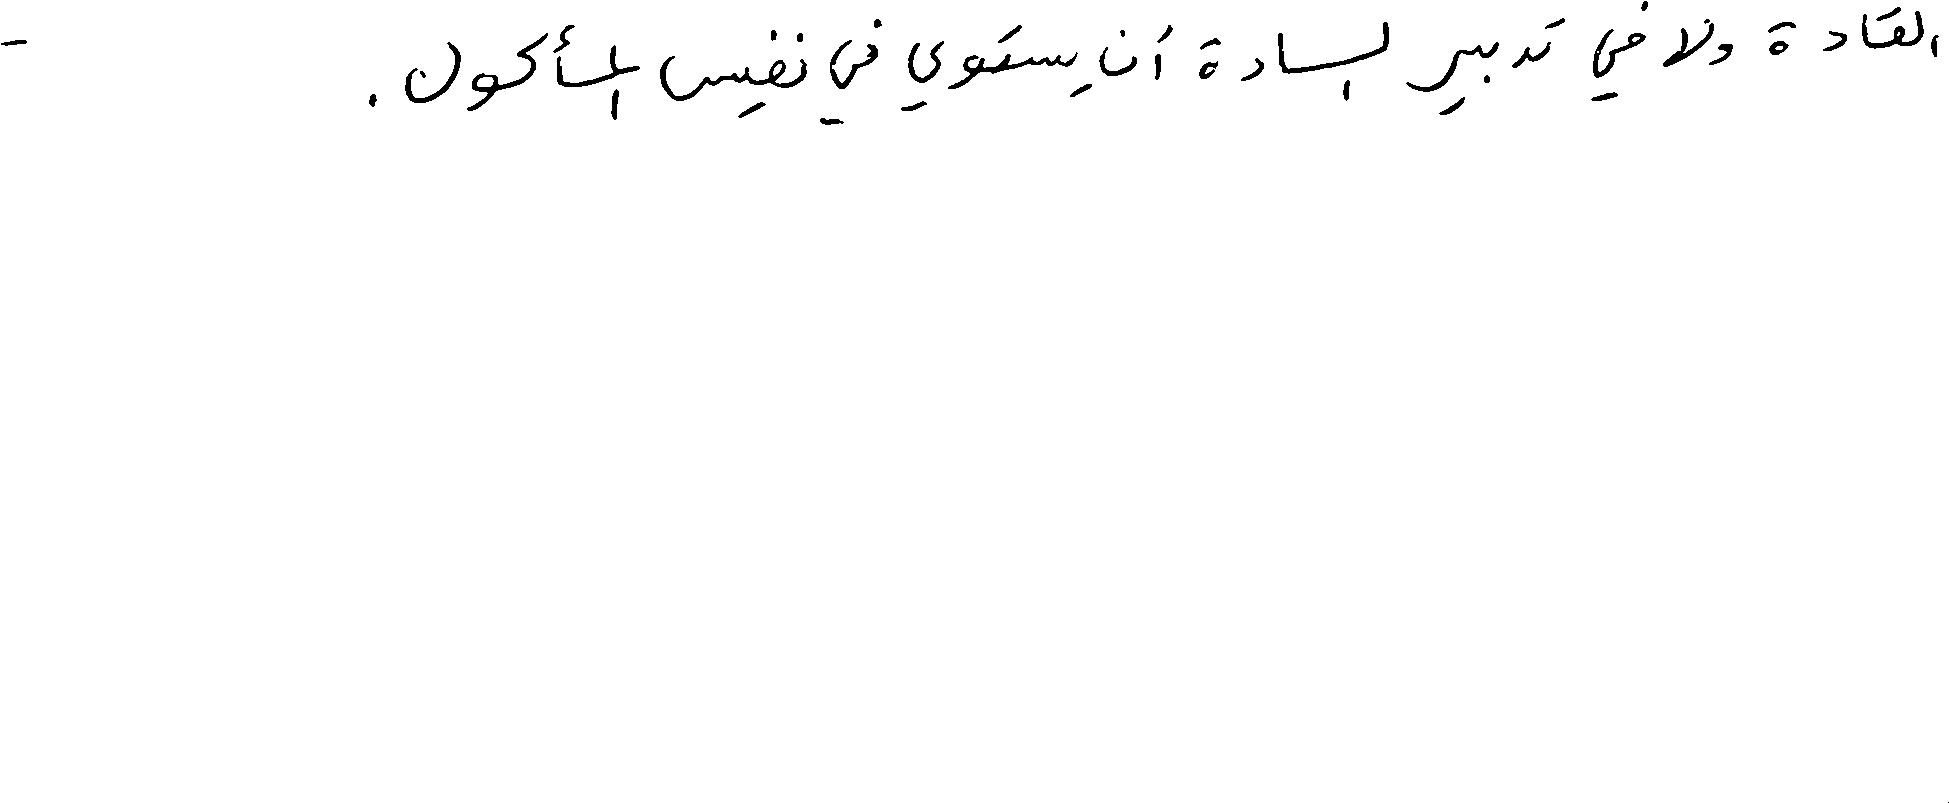 القادة ولا في تدبير السادة أن يستوي في نفيس المأكول .